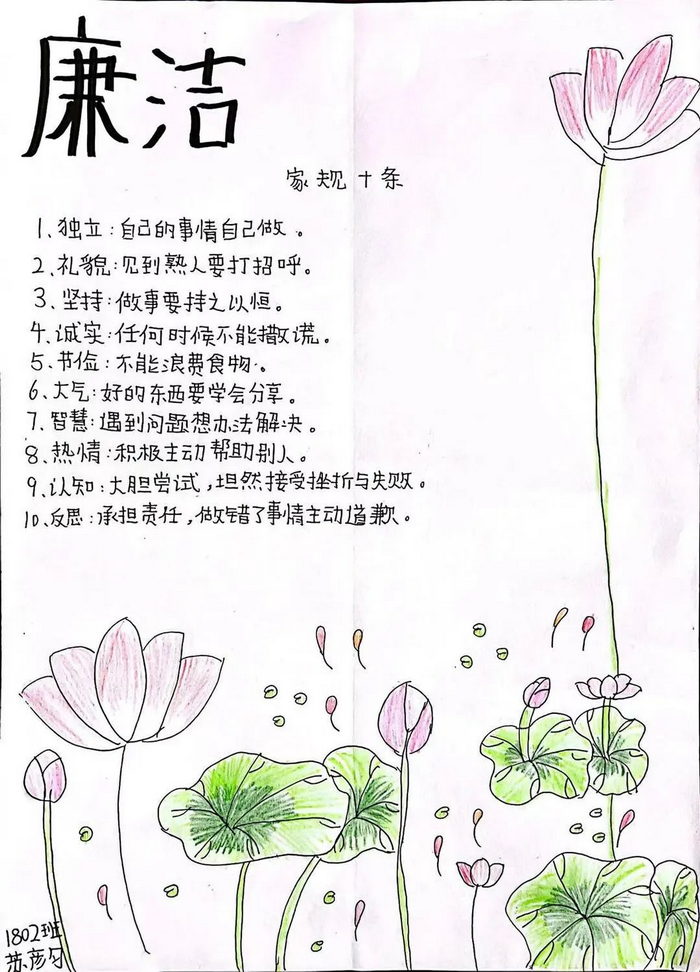 廉洁
家规十条
1、独立：自己的事情自己做。
2、礼貌：见到熟人要打招呼。
3、坚持：做事要持之以恒。
4、诚实：任何时候不能撒谎。
5、节俭：不能浪费食物。
6、大气：好的东西要学会分享。
7、智慧：遇到问题想办法解决。
8、热情：积极主动帮助别人。
9、认知：大胆尝试，坦然接受挫折与失败。
10、反思：承担责任，做错了事情主动道歉。
1802班